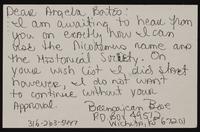 Dear Angela Bates:
I am awaiting to hear from
you on exactly how I can
use the Nicodemus name and
the Historical Society. On
your wish list I did start
however, I do not want
to continue without your
Approval.
Bose
P.O. Box
Wichita, KS 67201
316-263-